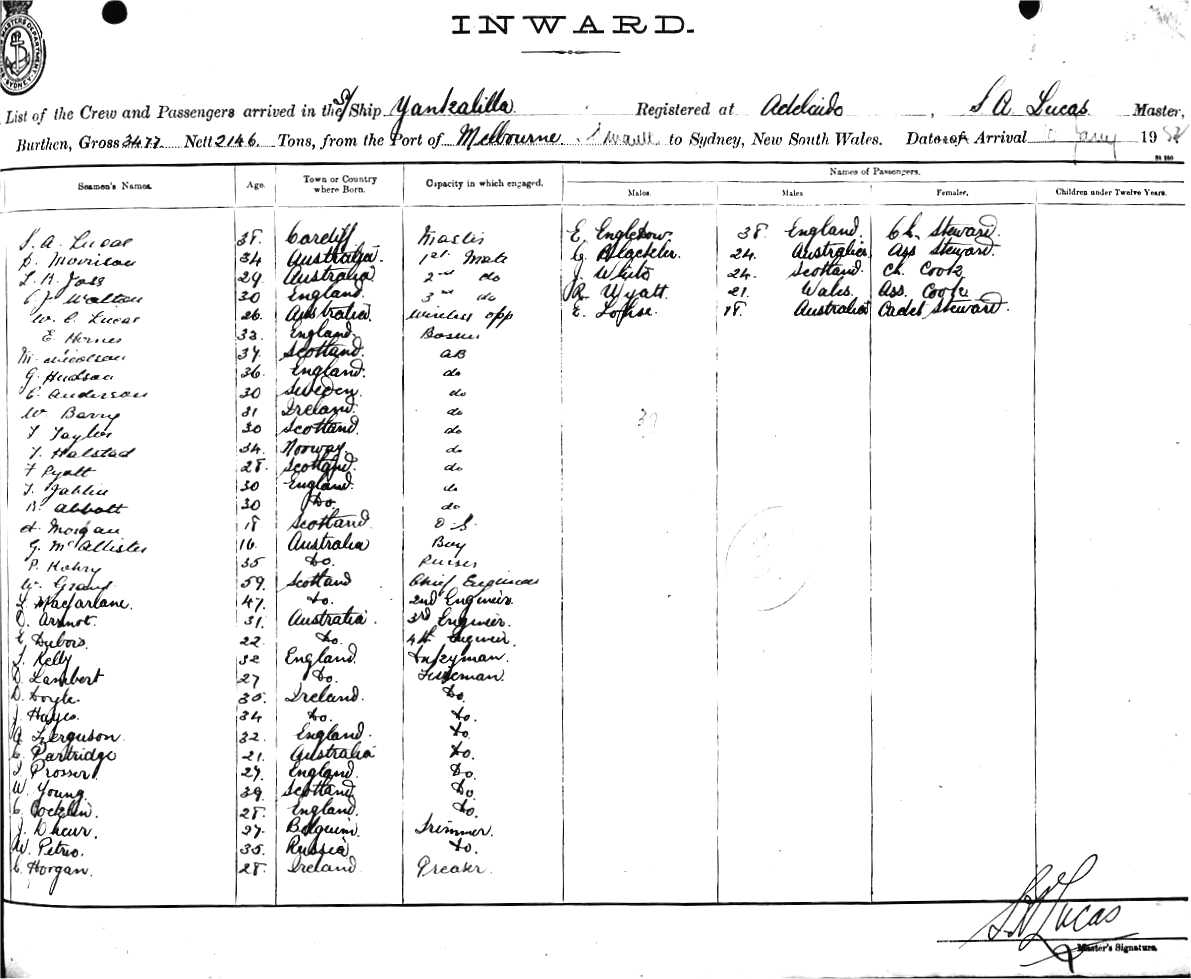 INWARD.
List of the Crew and Passengers arrived in the S/Ship Yankalilla. Registered at Adelaide, S A Lucas Master,
Burthen, Gross 3477. Nett 2146. Tons, from the Port of Melbourne to Sydney, New South Wales. Date of Arrival Jany 19
Names of Passengers.
Seamen's Names. Age. Town or Country where Born. Capacity in which engaged. Males. Males Females. Children under Twelve Years.
S. A. Lucas 38. Cardiff Master E. 38. England. Ch. Steward.
Morrison 34 Australia. 1st Mate C. Blackler. 24. Australia. Ass Steward.
L. R. 29. Australia 2nd do J. White 24. Scotland. Ch. Cook
J. Walton 30 England. 3rd do R. Wyatt 21. Wales. Ass. Cook
W. C. Lucas 26. Australia. Wireless opp E. 18. Australia Cadet Steward.
E 32. England. Bosun
M. Nicolson 37. Scotland. AB
G. Hudson 36. England. do
C. Anderson 30 Sweden. do
W Barry 31 Ireland. do
T Taylor 30 Scotland. do
T. Halstad 34. Norway. do
F Pyatt 28. Scotland. do
T. 30 England. do
R. Abbott 30 Do. do
A. Morgan 18 Scotland O S.
G. McAllister 16. Australia Boy
P. 35 Do. Purser
W. Grant 59. Scotland Chief Engineer
MacFarlane. 47. Do. 2nd Engineer.
Arnot. 31. Australia. 3rd Engineer.
E. Dubois. 22. Do 4th Engineer.
Kelly 32 England. Dnkyman.
Lambert 27 Do. Fireman.
D. Doyle. 35. Ireland. Do.
J. Hayes. 34 Do. Do.
A. Ferguson. 32. England. Do
C. Partridge 21. Australia Do.
Prosser. 27. England. Do.
W. Young 39. Scotland Do.
C. Cocklin. 28. England. Do.
J. 27. Belguim. Trimmer.
W. Petrio. 35. Russia Do.
C. Horgan. 28. Ireland Greaser.
S A Lucas
Master's Signature.